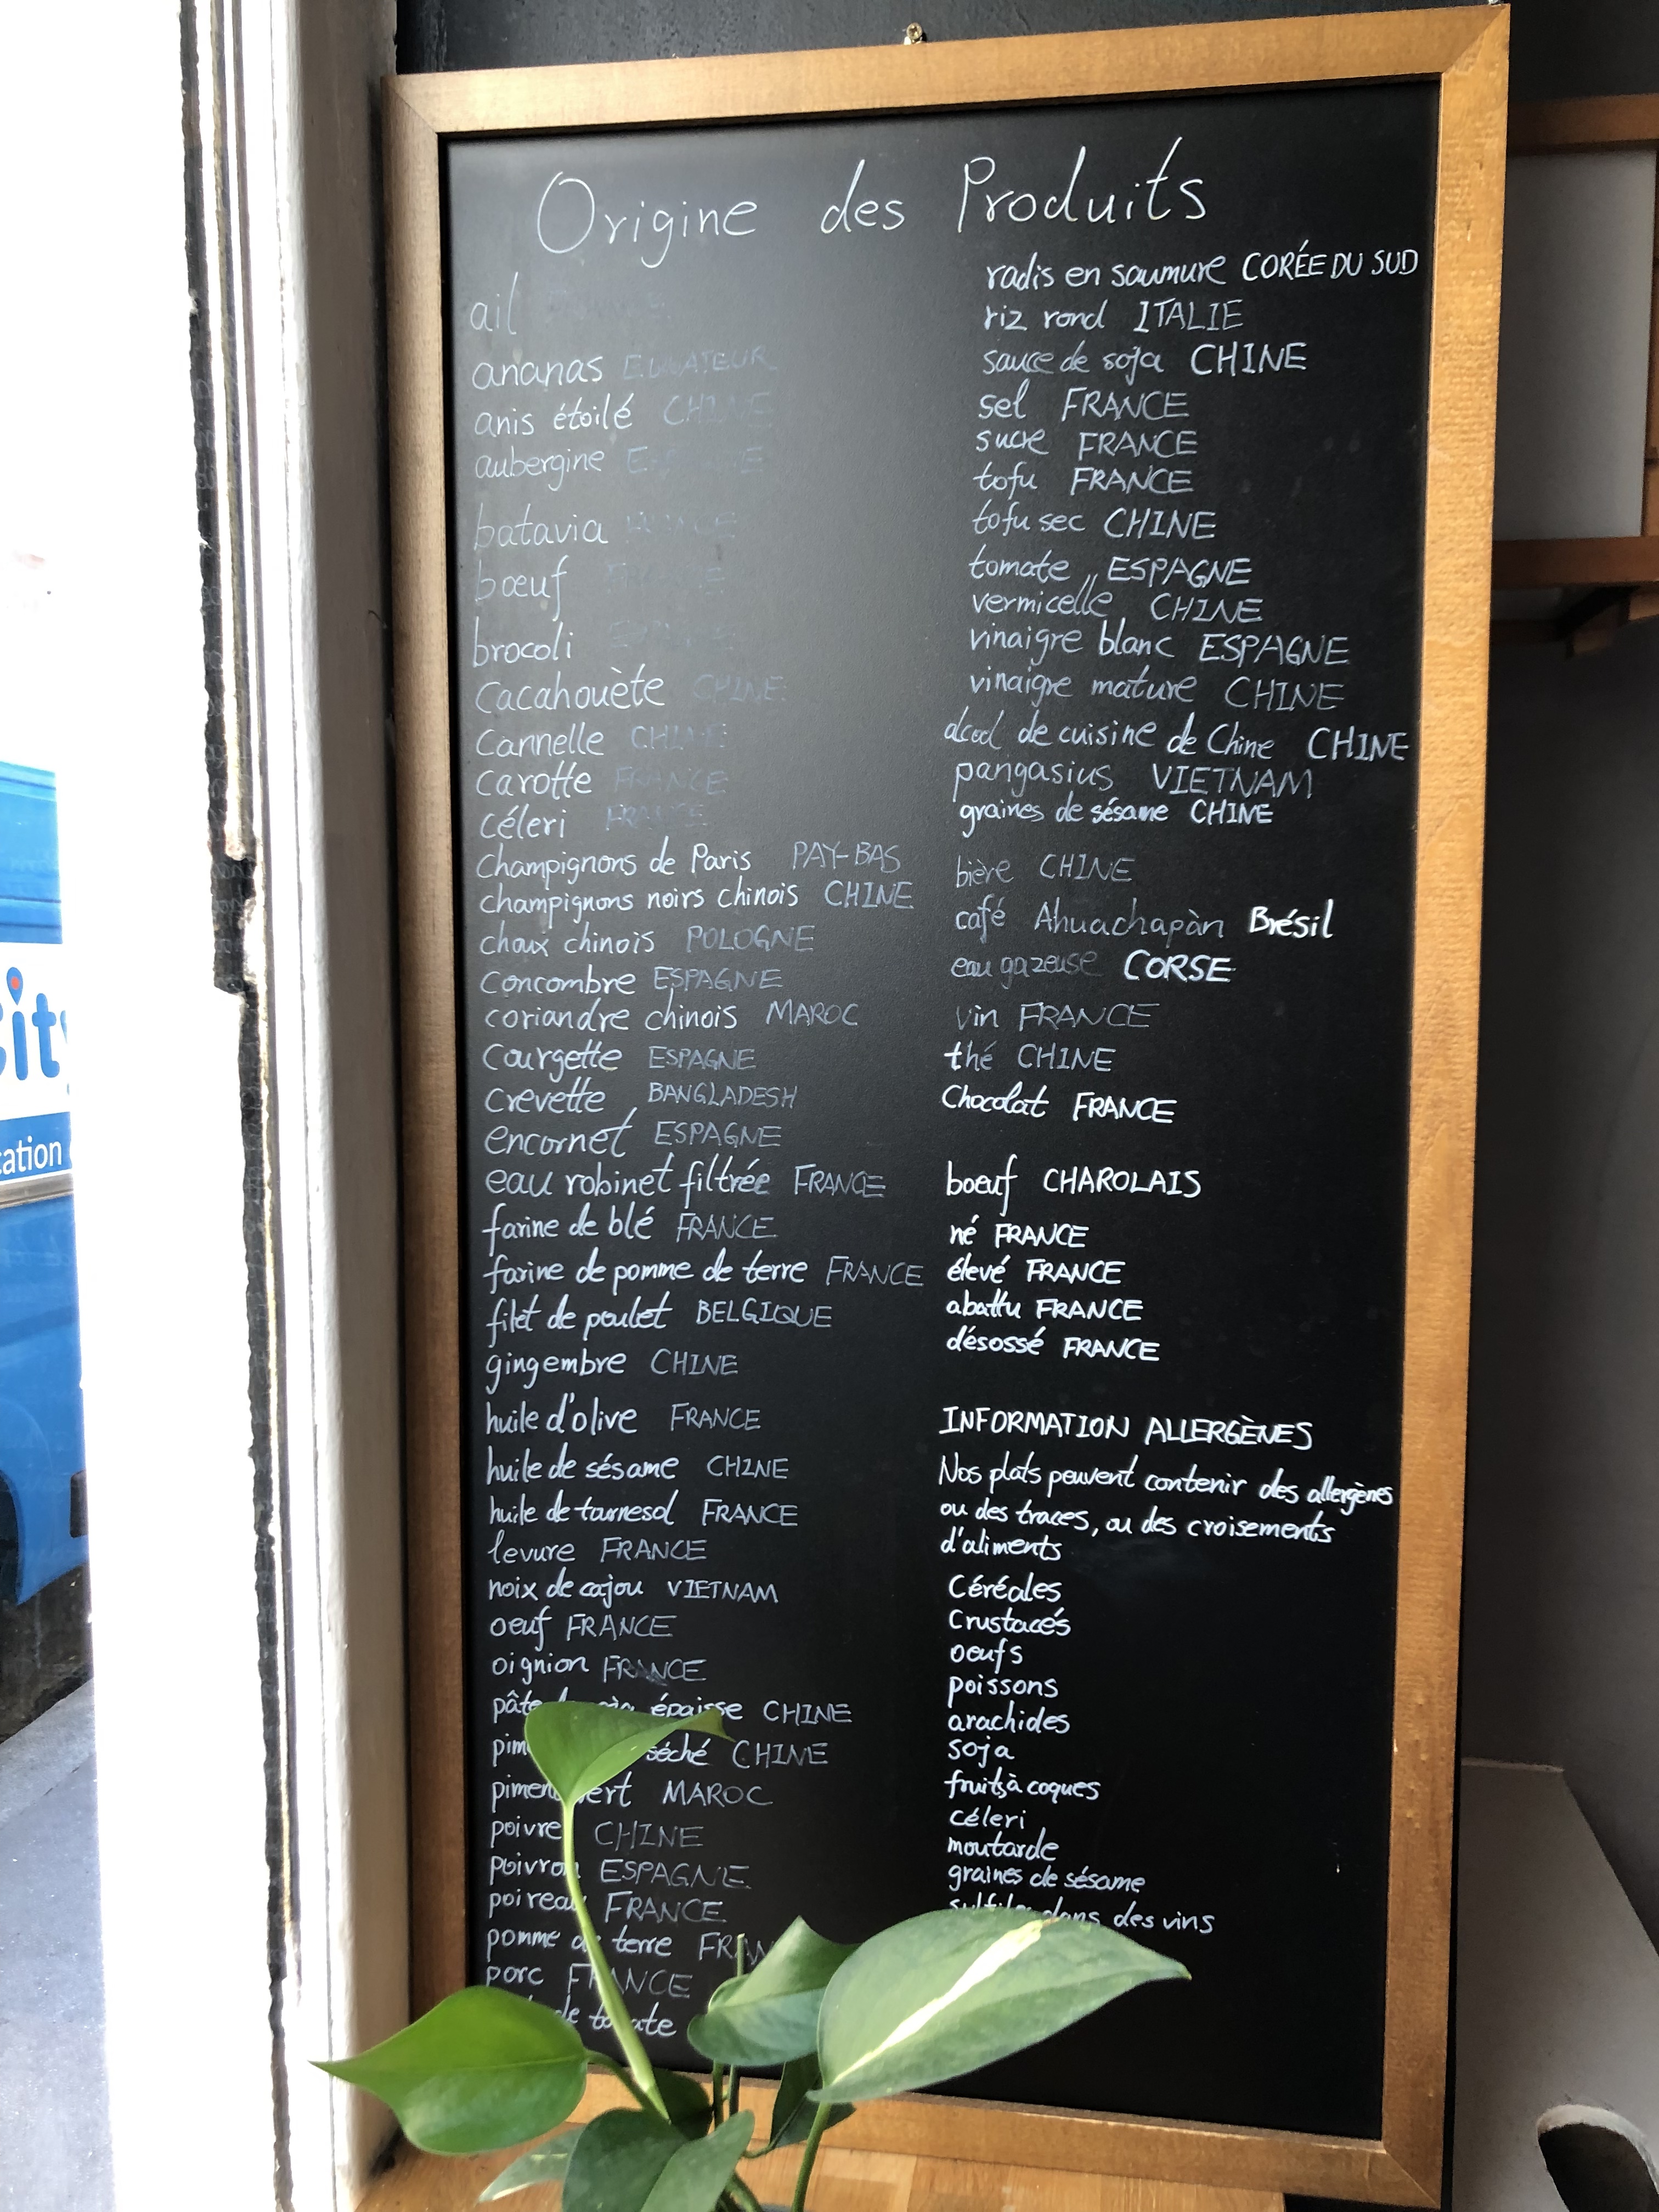 Origine des Produits
ail
ananas EQUATEUR
anis étoilé CHINE
aubergine ESPAGNE
batavia FRANCE
bœuf
brocoli
Cacahouète CHINE
Cannelle CHINE
carotte FRANCE
céleri FRANCE
Champignons de Paris PAY-BAS
champignons noirs chinois CHINE
choux chinois POLOGNE
Concombre ESPAGNE
coriandre chinois MAROC
Courgette ESPAGNE
crevette BANGLADESH
encornet ESPAGNE
eau robinet filtrée FRANCE
farine de blé FRANCE
farine de pomme de terre FRANCE
filet de poulet BELGIQUE
gingembre CHINE
huile d'olive FRANCE
huile de sésame CHINE
huile de tournesol FRANCE
levure FRANCE
noix de cajou VIETNAM
oeuf FRANCE
oignion FRANCE
pâte épaisse CHINE
séché CHINE
piment vert MAROC
poivre CHINE
poivron ESPAGNE
poireau FRANCE
pomme de terre FRAN
porc FRANCE
de tomate
radis en saumure CORÉE DU SUD
riz rond ITALIE
sauce de soja CHINE
sel FRANCE
sucre FRANCE
tofu FRANCE
tofu sec CHINE
tomate ESPAGNE
vermicelle CHINE
vinaigre blanc ESPAGNE
vinaigre mature CHINE
alcool de cuisine de Chine CHINE
pangasius VIETNAM
graines de sésame CHINE
bière CHINE
café Ahuachapàn Brésil
eau gazeuse CORSE
vin FRANCE
thé CHINE
Chocolat FRANCE
boeuf CHAROLAIS
né FRANCE
élevé FRANCE
abattu FRANCE
désossé FRANCE
INFORMATION ALLERGÈNES
Nos plats peuvent contenir des allergènes
ou des traces, ou des croisements
d'aliments
Céréales
Crustacés
oeufs
poissons
arachides
soja
fruits à coques
céleri
moutarde
graines de sésame
sulfites dans des vins